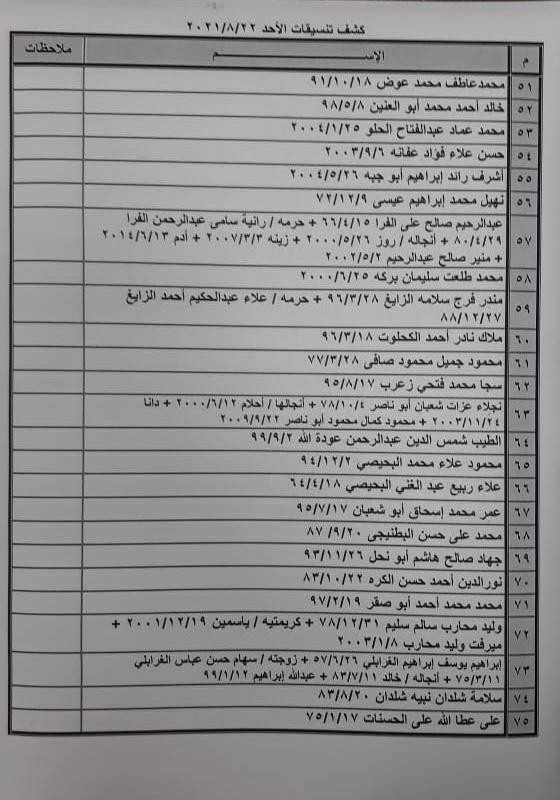 كشف تنسيقات الأحد ٢٠٢١/٨/٢٢
م الإســـم ملاحظات
٥١ محمدعاطف محمد عوض ٩١/١٠/١٨
٥٢ خالد أحمد محمد أبو العنين ٩٨/٥/٨
٥٣ محمد عماد عبدالفتاح الحلو ٢٠٠٤/١/٢٥
٥٤ حسن علاء فؤاد عفانه ٢٠٠٣/٩/٦
٥٥ أشرف رائد إبراهيم أبو جبه ٢٠٠٤/٥/٢٦
٥٦ نهيل محمد إبراهيم عيسى ٧٢/١٢/٩
عبدالرحيم صالح على الفرا ٦٦/٤/١٥ + حرمه / رانية سامى عبدالرحمن الفرا
٥٧ ٨٠/٤/٢٩ + أنجاله / روز ٢٠٠٠/٥/٢٦ + زينه ٢٠٠٧/٣/٣ + أدم ٢٠١٤/٦/١٣
+ منير صالح عبدالرحيم ٢٠٠٢/٥/٢
٥٨ محمد طلعت سليمان بركه ٢٠٠٠/٦/٢٥
٥٩ منذر فرج سلامه الزايغ ٩٦/٣/٢٨ + حرمه / علاء عبدالحكيم أحمد الزايغ
٨٨/١٢/٢٧
٦٠ ملاك نادر أحمد الكحلوت ٩٦/٣/١٨
٦١ محمود جميل محمود صافى ٧٧/٣/٢٨
٦٢ سجا محمد فتحي زعرب ٩٥/٨/١٧
٦٣ نجلاء عزات شعبان أبو ناصر ٧٨/١٠/٤ + أنجالها / أحلام ٢٠٠٠/٦/١٢ + دانا
٢٠٠٣/١١/٢٤ + محمود كمال محمود أبو ناصر ٢٠٠٩/٩/٢٢
٦٤ الطيب شمس الدين عبدالرحمن عودة الله ٩٩/٩/٢
٦٥ محمود علاء محمد البحيصي ٩٤/١٢/٢
٦٦ علاء ربيع عبد الغني البحيصي ٦٤/٤/١٨
٦٧ عمر محمد إسحاق أبو شعبان ٩٥/٧/١٧
٦٨ محمد على حسن البطنيجى ٨٧/٩/٢٠
٦٩ جهاد صالح هاشم أبو نحل ٩٣/١١/٢٦
٧٠ نورالدين أحمد حسن الكره ٨٣/١٠/٢٢
٧١ محمد محمد أحمد أبو صقر ٩٧/٢/١٩
٧٢ وليد محارب سالم سليم ٧٨/١٢/٣١ + كريمتيه / ياسمين ٢٠٠١/١٢/١٩ +
ميرفت وليد محارب ٢٠٠٣/١/٨
٧٣ إبراهيم يوسف إبراهيم الغرابلي ٥٧/٦/٢٦ + زوجته / سهام حسن عباس الغرابلي
٧٥/٣/١١ + أنجاله / خالد ٨٣/٧/١١ + عبدالله إبراهيم ٩٩/١/١٢
٧٤ سلامة شلدان نبيه شلدان ٨٣/٨/٢٠
٧٥ على عطا الله على الحسنات ٧٥/١/١٧